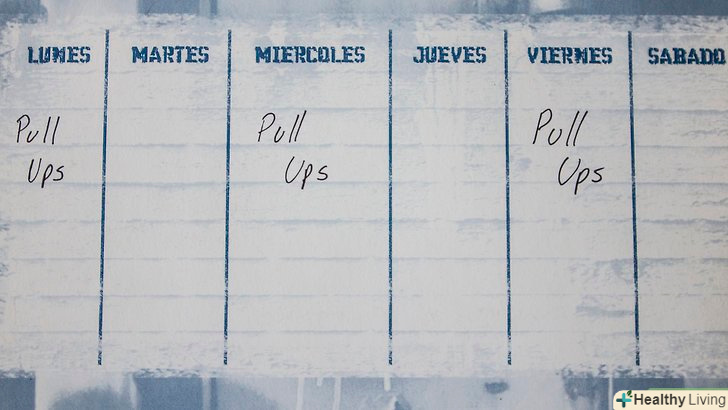 LUNES MARTES MIERCOLES JUEVES VIERNES SABADO
Pull Pull Pull
Ups Ups Ups
Healthy Living